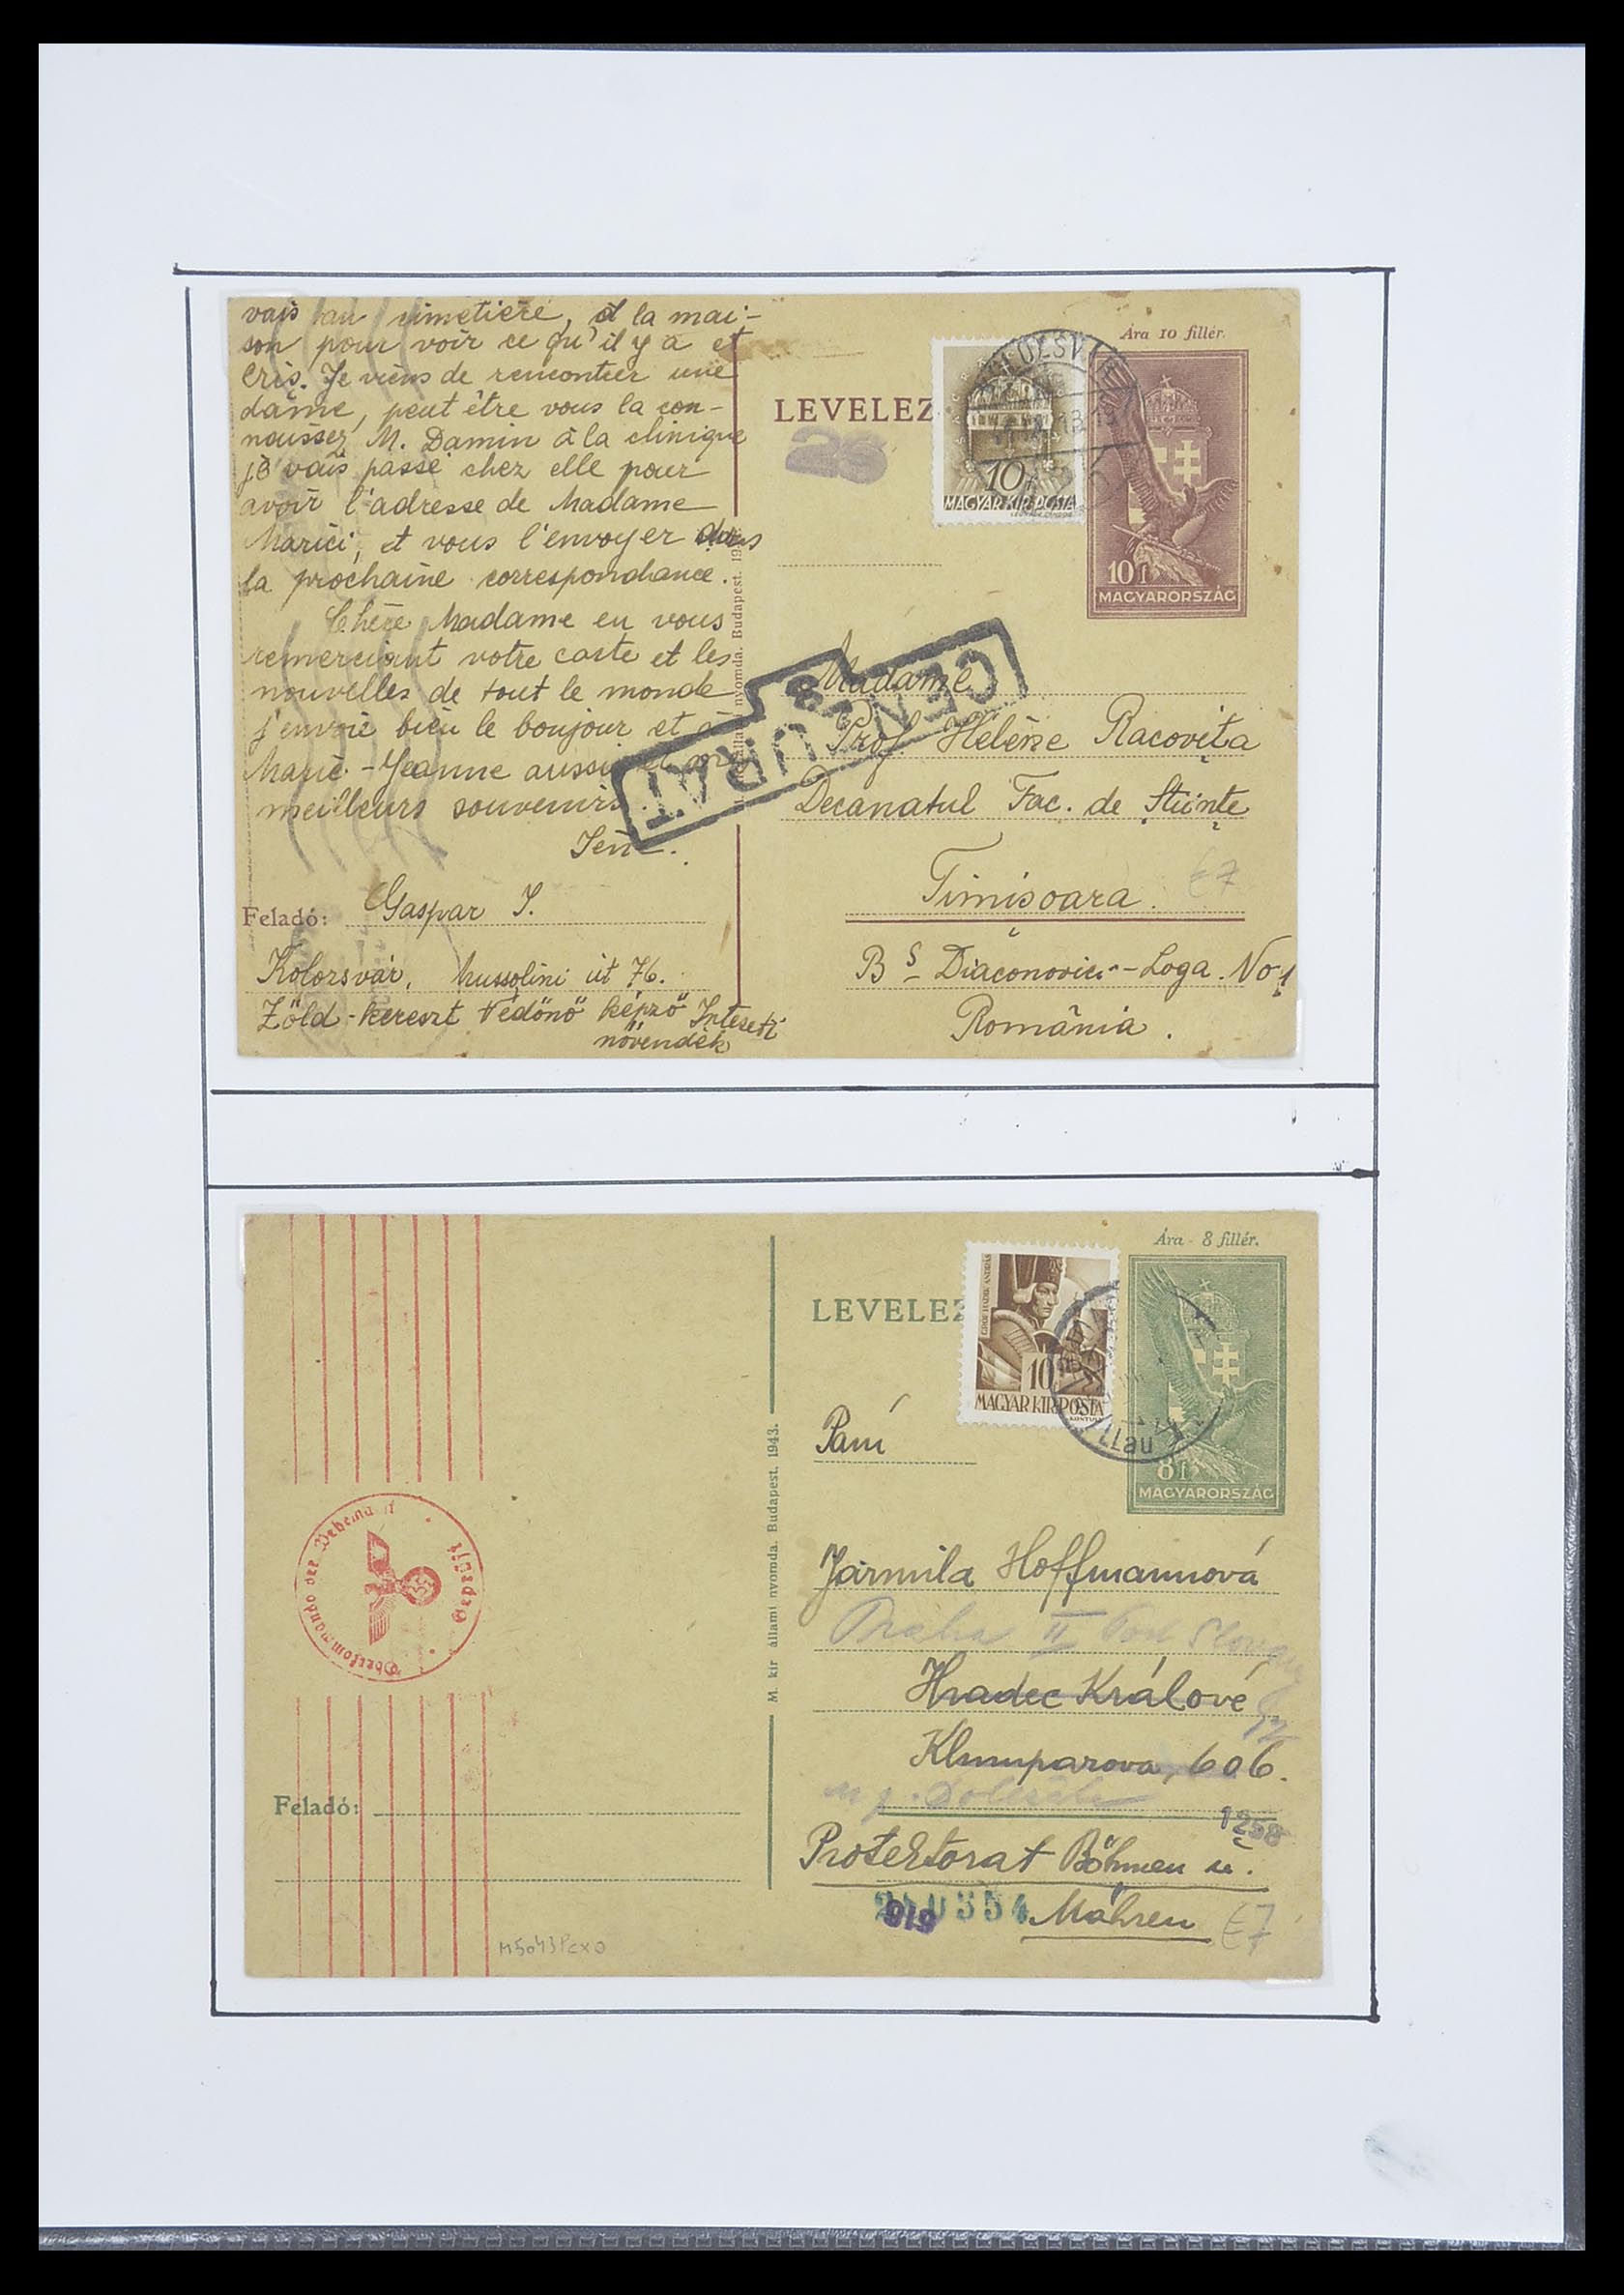 vais au cimetière, à la mai-
son pour voir ce qu'il y a et
Cris. Je viens de rencontrer une
dame, peut être vous la con-
naissez, M. Damin à la clinique
je vais passé chez elle pour
avoir l'adresse de Madame
Marici, et vous l'envoyer dans
la prochaine correspondance.
Chère Madame en vous
remerciant votre carte et les
nouvelles de tout le monde
j'envoie bien le boujour et à
Marie-Jeanne aussi et
meilleurs souvenirs.
Feladó: Gaspar I.
Kolozsvár, Mussolini út 76.
Zöld-kereszt Védőnő képző Intézeti
növendék
Ára 10 fillér.
LEVELEZ
26
10f
MAGYAR KIR. POSTA
10 f
MAGYARORSZÁG
nyomda. Budapest.
CENZURAT
8
Madame
Prof. Hélène Racoviţa
Decanatul Fac. de Ştiinţe
Timişoara.
E7
Bd Diaconovici-Loga. No 1
România.
Ára 8 fillér.
LEVELEZ
GRÓF HADIK ANDRÁS
10
MAGYAR KIR. POSTA
8 f
MAGYARORSZÁG
M. kir állami nyomda. Budapest. 1943.
Paní
Jarmila Hoffmannová
Praha II
Hradec Králové
Klumparova, 606.
1258
Protektorat Böhmen u.
Mähren
919
E7
Oberkommando der Wehrmacht
Geprüft
Feladó: